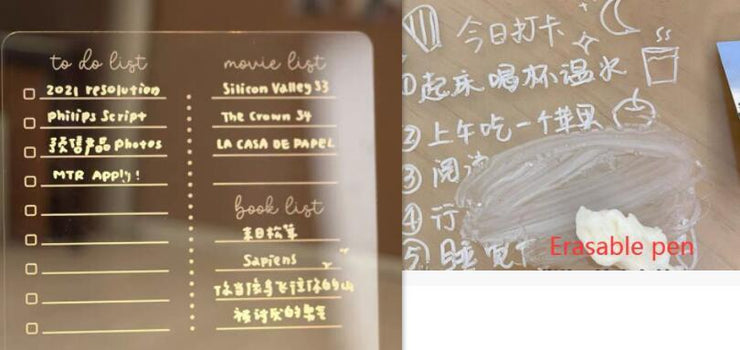 to do list
2021 resolution
Philips Script
预售产品 Photos
MTR Apply!
movie list
Silicon Valley S3
The Crown S4
LA CASA DE PAPEL
book list
Sapiens
被讨厌的勇气
今日打卡
①起来喝杯温水
②上午吃一个苹果
③阅读
④行
⑤睡觉
Erasable pen